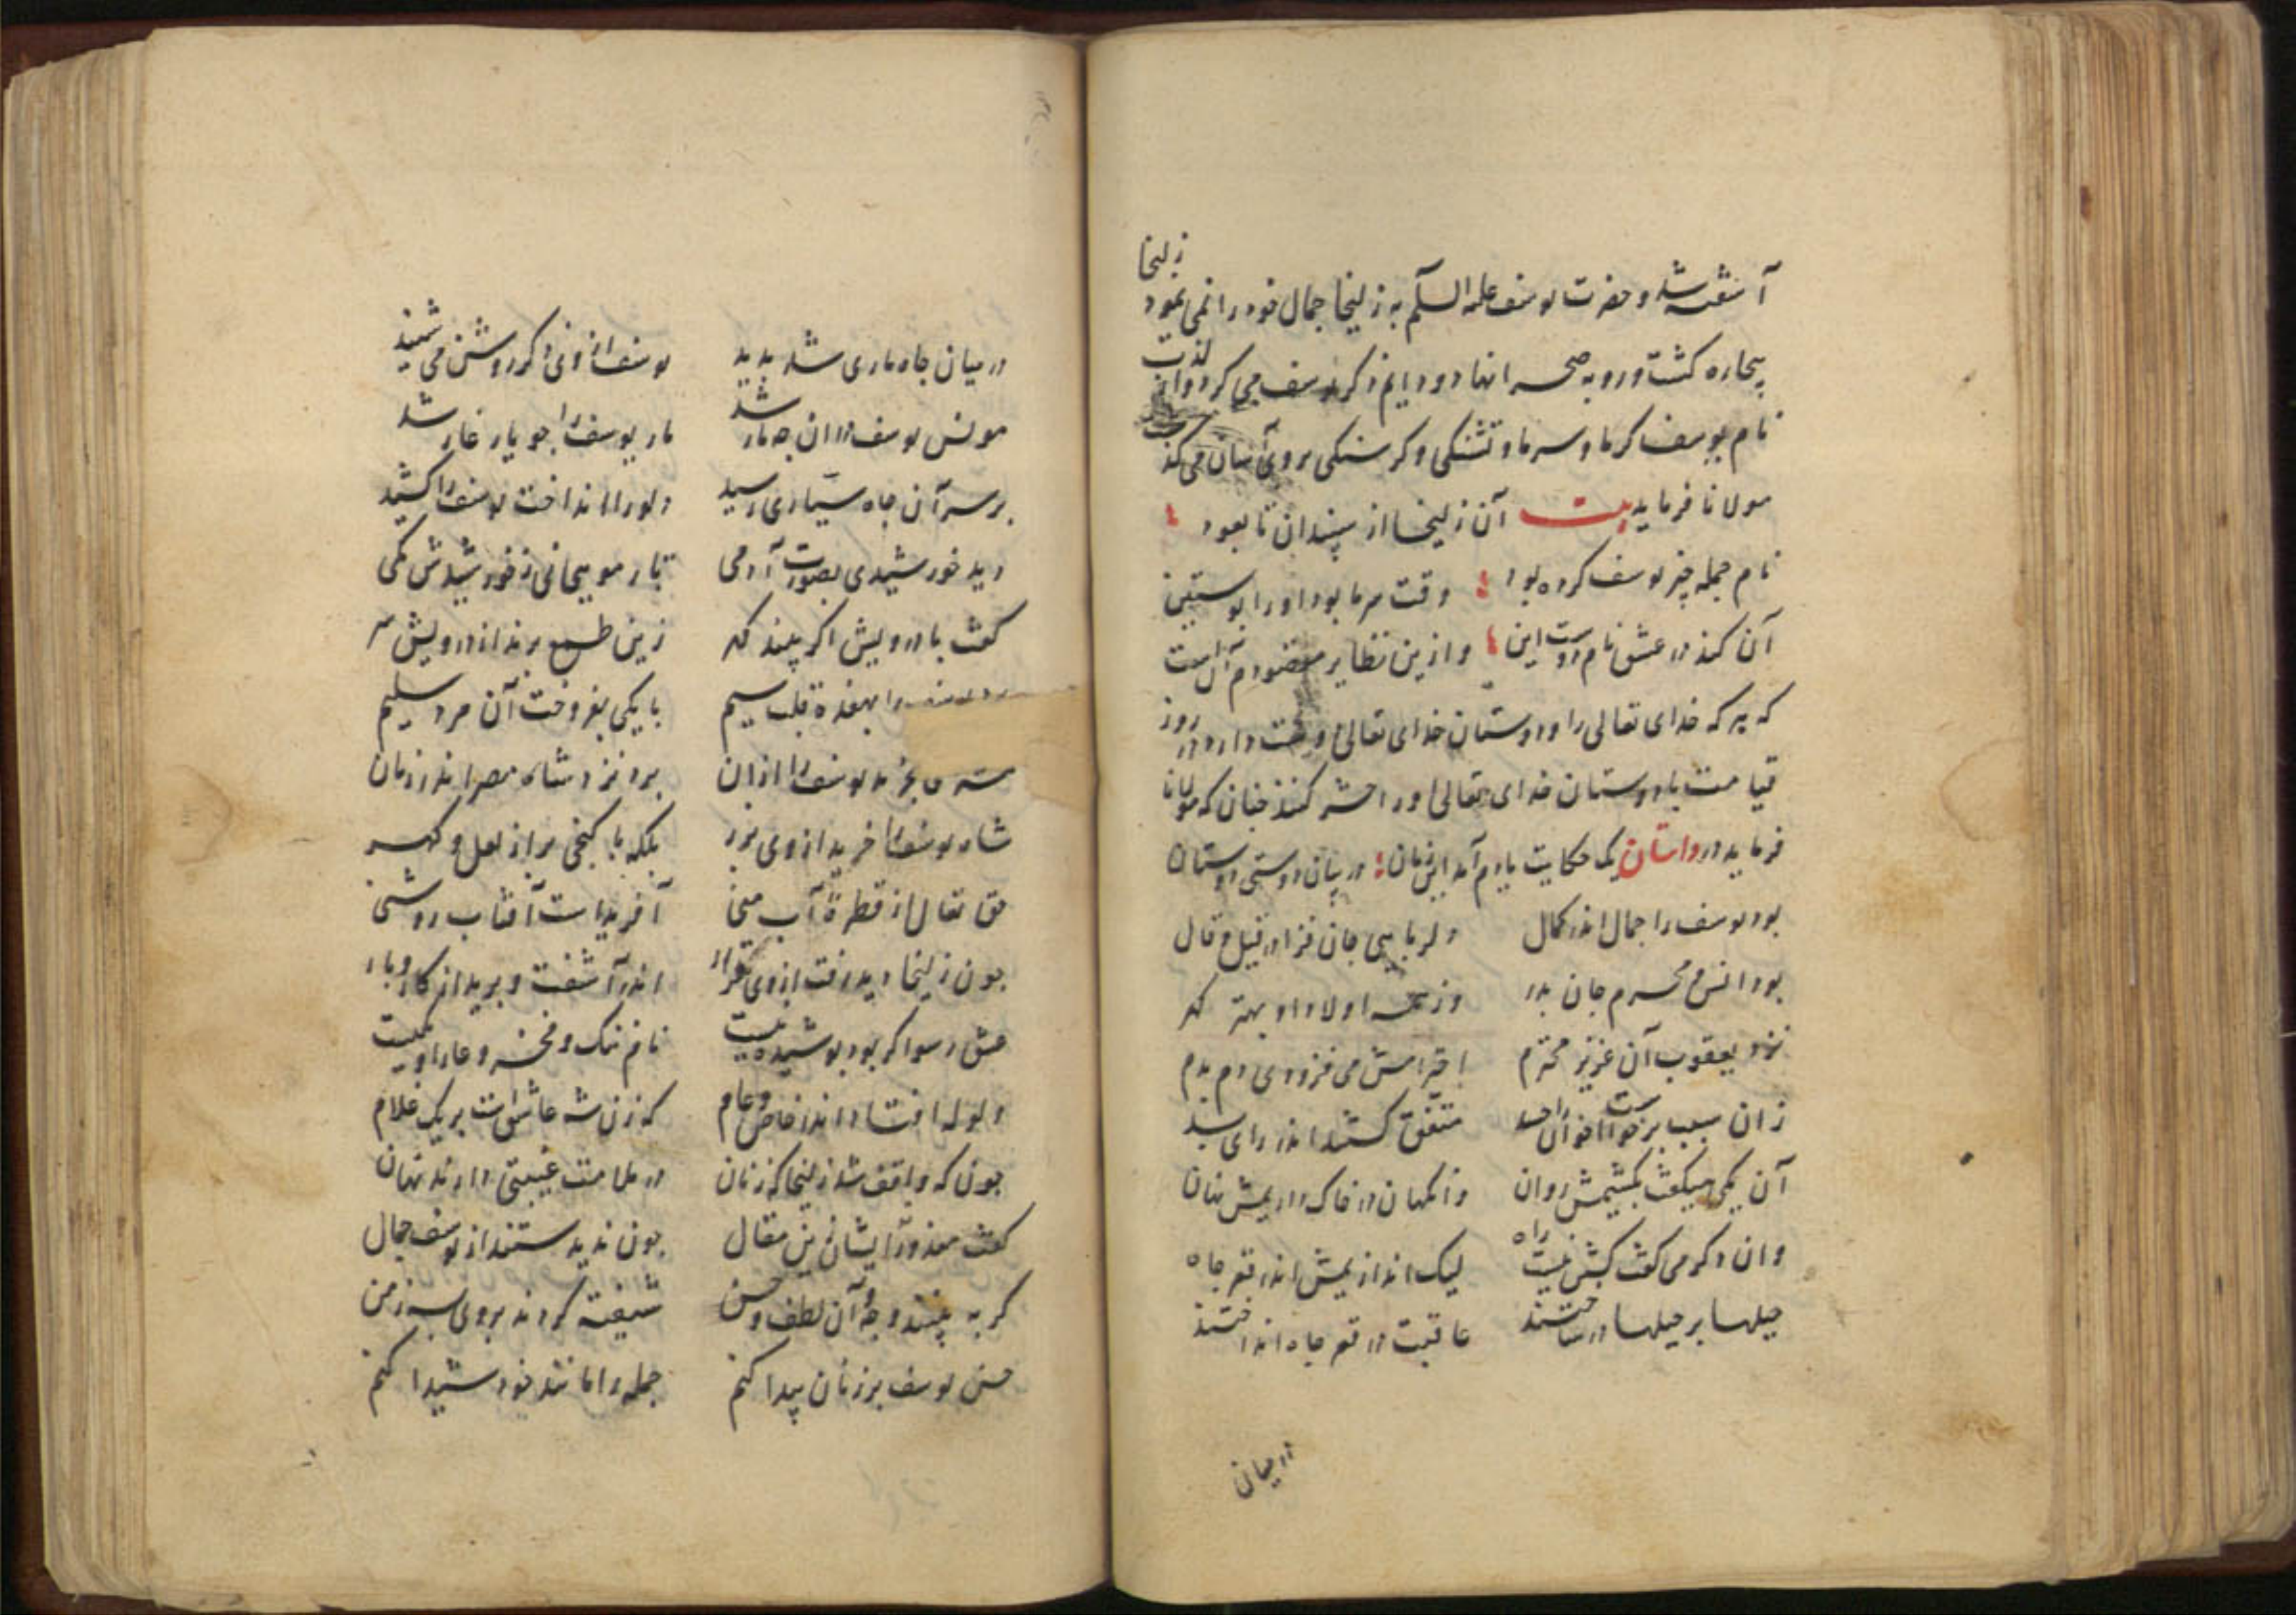 زلیخا
آشفته شد و حضرت یوسف علیه السلام به زلیخا جمال خود را نمی نمود
بیچاره کشت و رو به صحرا نهاد و دایم ذکر یوسف می کرد و از لذت
نام یوسف کرما و سرما و تشنکی و کرسنکی بر وی آسان می کذشت
مولانا فرماید بیت آن زلیخا از سپندان تا بعود
نام جمله چیز یوسف کرده بود وقت سرما بود او را پوستین
آن کند در عشق نام دوست این و ازین نظایر مقصودم آن است
که هر که خدای تعالی را و دوستان خدای تعالی را دوست دارد در روز
قیامت با دوستان خدای تعالی او را حشر کنند چنان که مولانا
فرماید در داستان یک حکایت یادم آمد این زمان در بیان دوستی دوستان
بود یوسف را جمال اندر کمال دلربایی جان فزا در قیل و قال
بود انس و محرم جان پدر وز همه اولاد او بهتر کهر
نزد یعقوب آن عزیز محترم احترامش می فزودی دم بدم
زان سبب برخواست اخوان را حسد متفق کشتند اندر رای بد
آن یکی میکفت بکشیمش روان وانکهان در خاک داریمش نهان
وان دکر می کفت کشتن نیست راه لیک اندازیمش اندر قعر چاه
حیلها بر حیلها در ساختند عاقبت در قعر چاه انداختند
در میان
در میان چاه ماری شد پدید یوسف از وی ذکر روشن می شنید
مونس یوسف در ان چه مار شد مار یوسف را چو یار غار شد
بر سر آن چاه سیاری رسید دلو را انداخت یوسف را کشید
دید خورشیدی بصورت آدمی تار مویی نی ز خورشیدش کمی
کفت با درویش اکر بیند کهر زین طمع برند از درویش سر
یوسف را بهفده قلب سیم با یکی بفروخت آن مرد سلیم
بخرید یوسف را ازان برد نزد شاه مصر اندر زمان
شاه یوسف را خرید از وی بزر بلکه با کنجی پر از لعل و کهر
حق تعالی از قطرهٔ آب منی آفریداست آفتاب روشنی
چون زلیخا دید رفت از وی قرار اندر آشفت و برید از کار و بار
عشق رسوا کر بود پوشیده نیست نام ننک و فخر و عار او یکیست
ولوله افتاد اندر خاص و عام که زن شه عاشق است بر یک غلام
چون که واقف شد زلیخا که زنان در ملامت غیبتی دارند نهان
کفت معذورند ایشان زین مقال چون ندیدستند از یوسف جمال
کر به بینند وجه آن لطف و حسن شیفته کردند بر وی به ز من
حسن یوسف بر زنان پیدا کنم جمله را مانند خود شیدا کنم